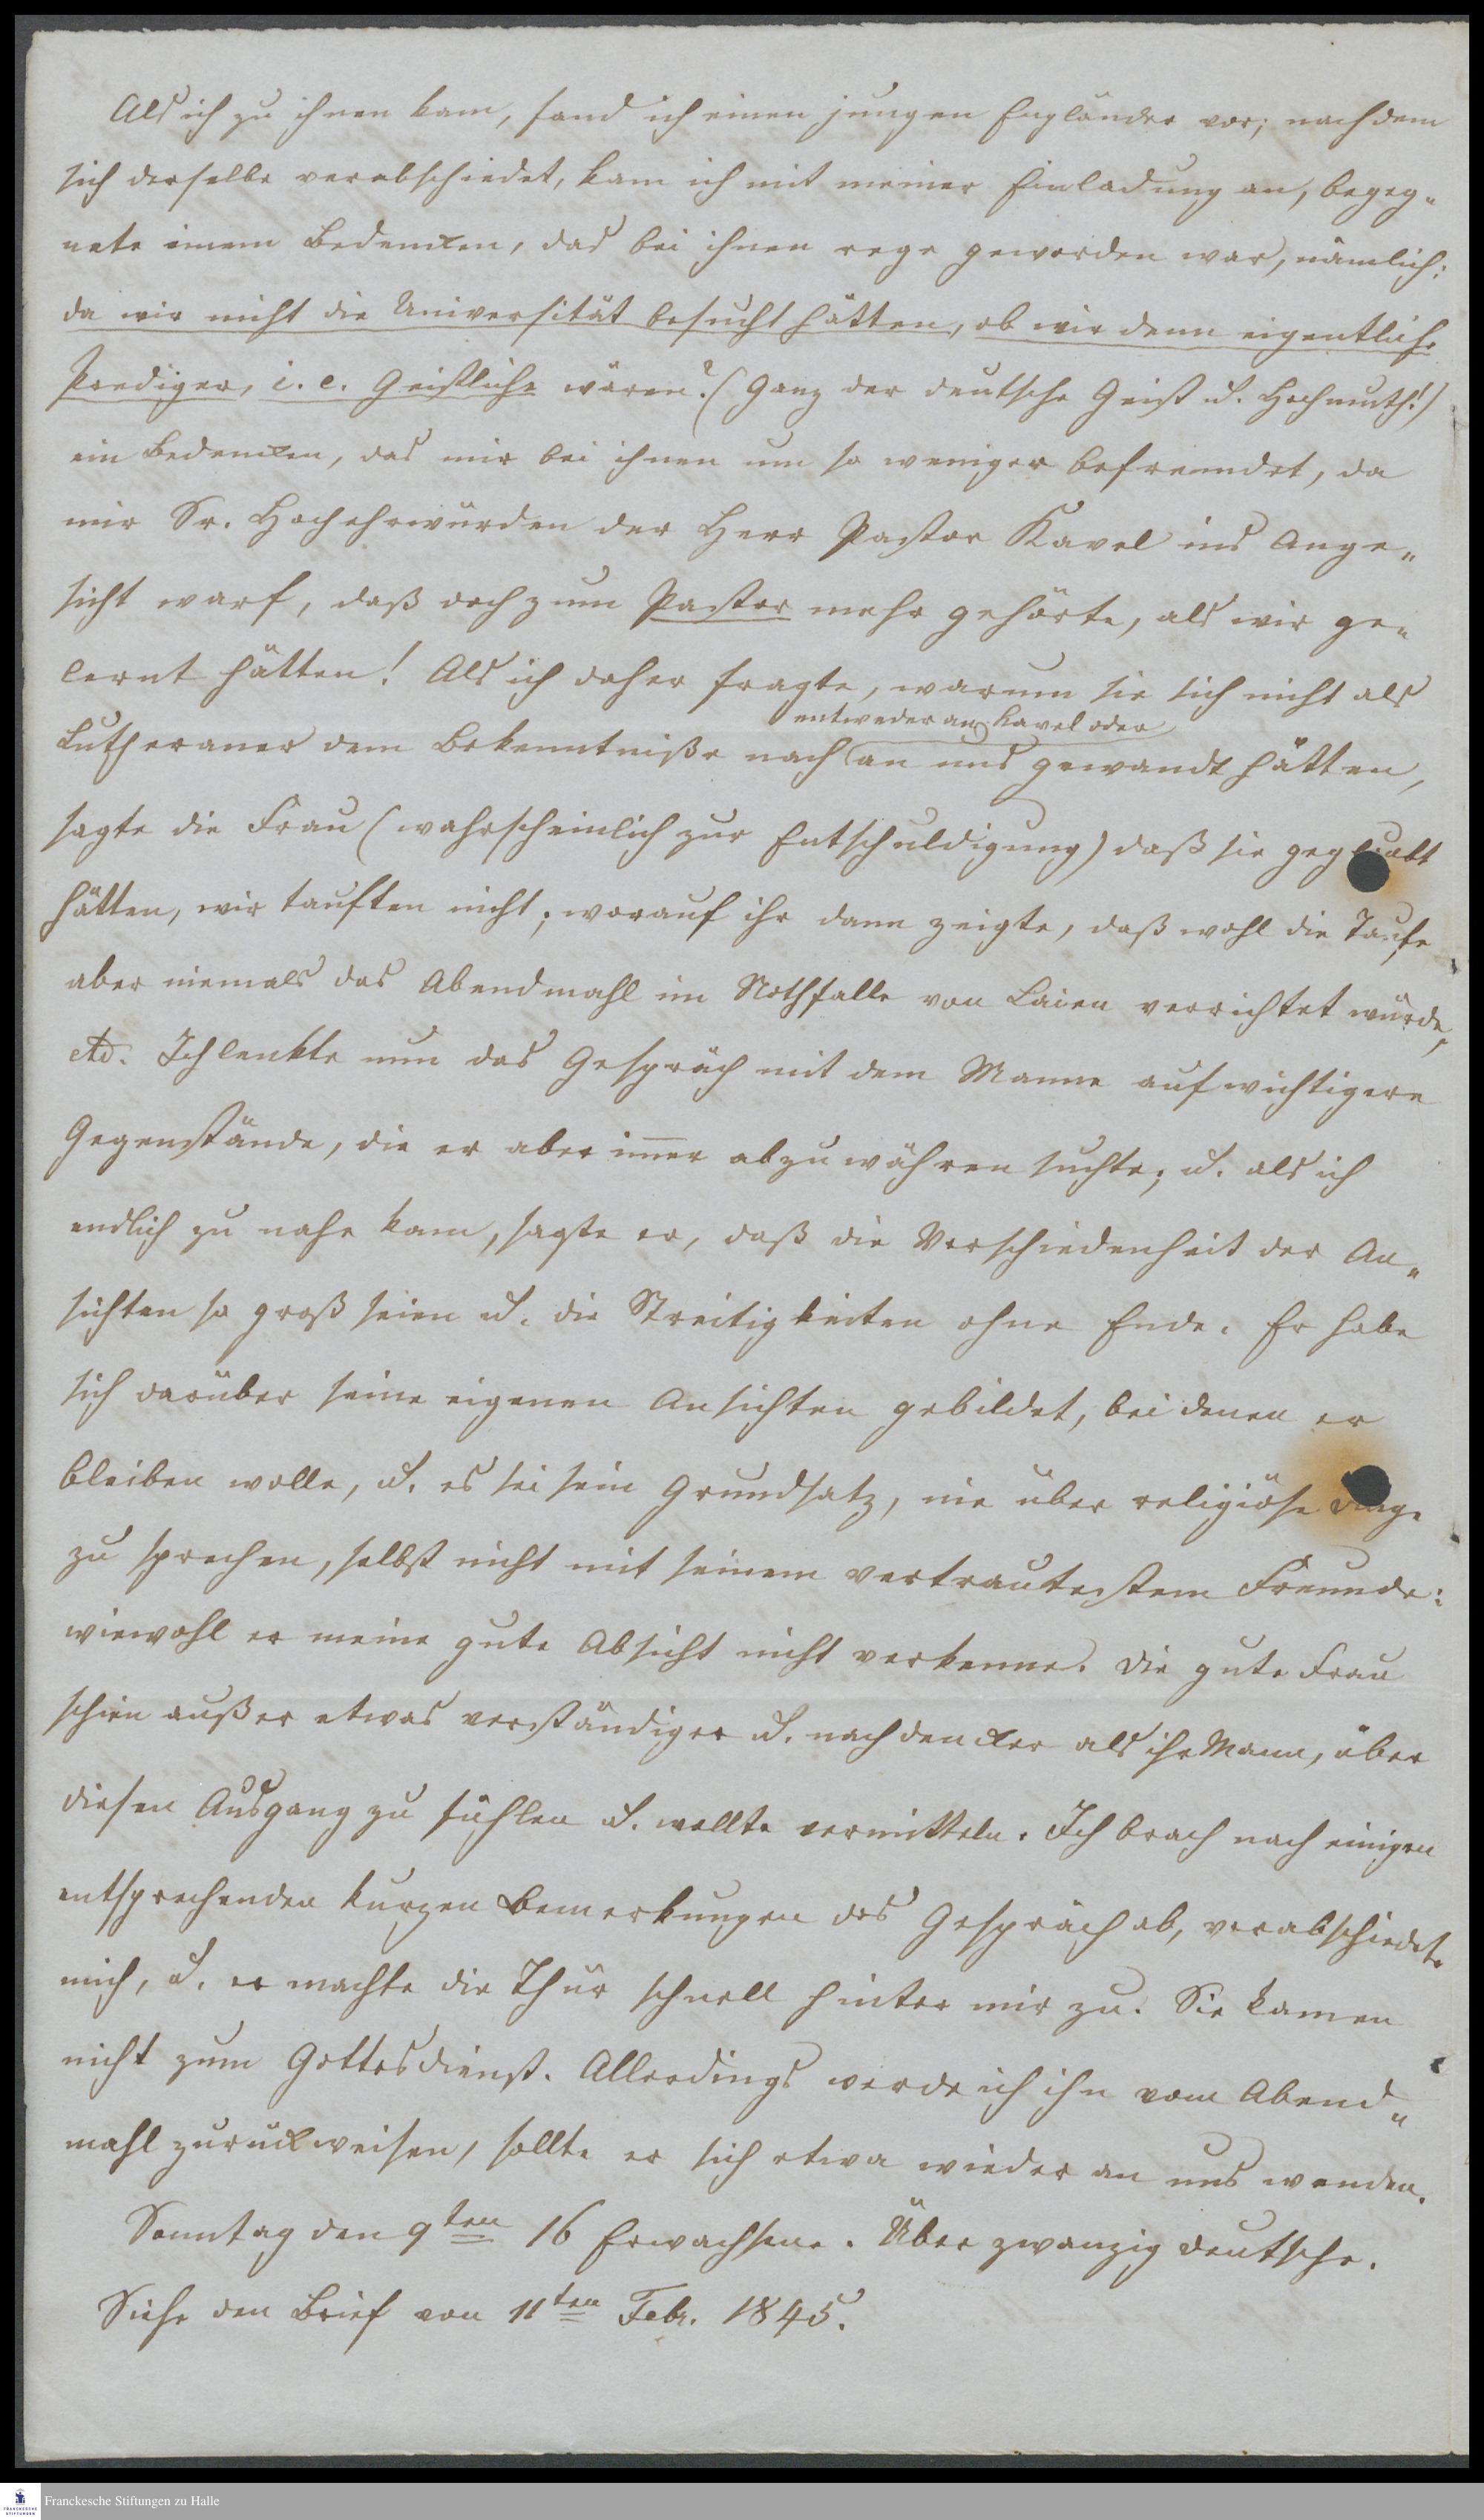 Als ich zu ihnen kam, fand ich einen jungen Engländer vor; nachdem
sich derselbe verabschiedet, kam ich mit meiner Einladung an, begeg-
nete einem Bedencken, das bei ihnen rege geworden war, nämlich:
da wir nicht die Universität besucht hätten, ob wir denn eigentliche
Prediger, i. e. Geistliche wären? (Ganz der deutsche Geist u. Hochmuth!)
ein Bedencken, das mir bei ihnen um so weniger befremdet, da
mir Sr. Hochehrwürden der Herr Pastor Kavel ins Ange-
sicht warf, daß doch zum Pastor mehr gehörte, als wir ge-
lernt hätten! Als ich daher fragte, warum sie sich nicht als
entweder an Kavel oder
Lutheraner dem Bekenntniße nach an uns gewandt hätten,
sagte die Frau (wahrscheinlich zur Entschuldigung) daß sie geglaubt
hätten, wir tauften nicht; worauf ihr dann zeigte, daß wohl die Taufe
aber niemals das Abendmahl im Nothfalle von Laien verrichtet würde,
etc. Ich lenkte nun das Gespräch mit dem Manne auf wichtigere
Gegenstände, die er aber imer abzuwähren suchte; u. als ich
endlich zu nahe kam, sagte er, daß die Verschiedenheit der An-
sichten so groß seien u. die Streitigkeiten ohne Ende. Er habe
sich darüber seine eigenen Ansichten gebildet, bei denen er
bleiben wolle, u. es sei sein Grundsatz, nie über religiöse Dinge
zu sprechen, selbst nicht mit seinem vertrautestem Freunde:
wiewohl er meine gute Absicht nicht verkenne. Die gute Frau
schien außer etwas verständiger u. nachdencker als ihr Mann, über
diesen Ausgang zu fühlen u. wollte vermitteln. Ich brach nach einigen
entsprechenden kurzen Bemerkungen das Gespräch ab, verabschiedete
mich, u. er machte die Thür schnell hinter mir zu. Sie kamen
nicht zum Gottesdienst. Allerdings werde ich ihn vom Abend-
mahl zurückweisen, sollte er sich etwa wieder an uns wenden.
Sonntag den 9ten 16 Erwachsene. Über zwanzig deutsche.
Siehe den Brief von 11ten Febr. 1845.
Franckesche Stiftungen zu Halle